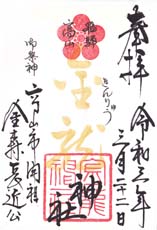 奉拝
令和三年
三月二十二日
飛騨
高山
きんりゅう
金龍
神社
御祭神
高山市開祖
金森長近公